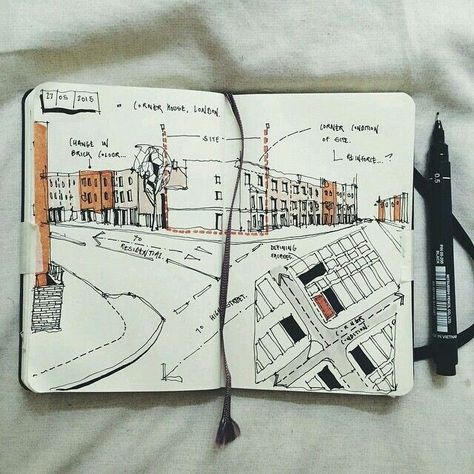 27 05 2015
CORNER HOUSE, LONDON.
CHANGE IN
BRICK COLOUR...
SITE
CORNER CONDITION
OF SITE.
REINFORCE...?
TO
RESIDENTIAL
TO HIGH STREET.
DEFINING
CORNER
CONDITION
0.5